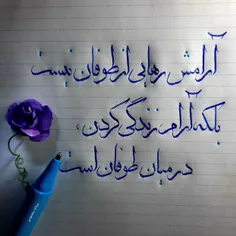 آرامش رهایی از طوفان نیست
بلکه آرام زندگی کردن،
در میان طوفان است